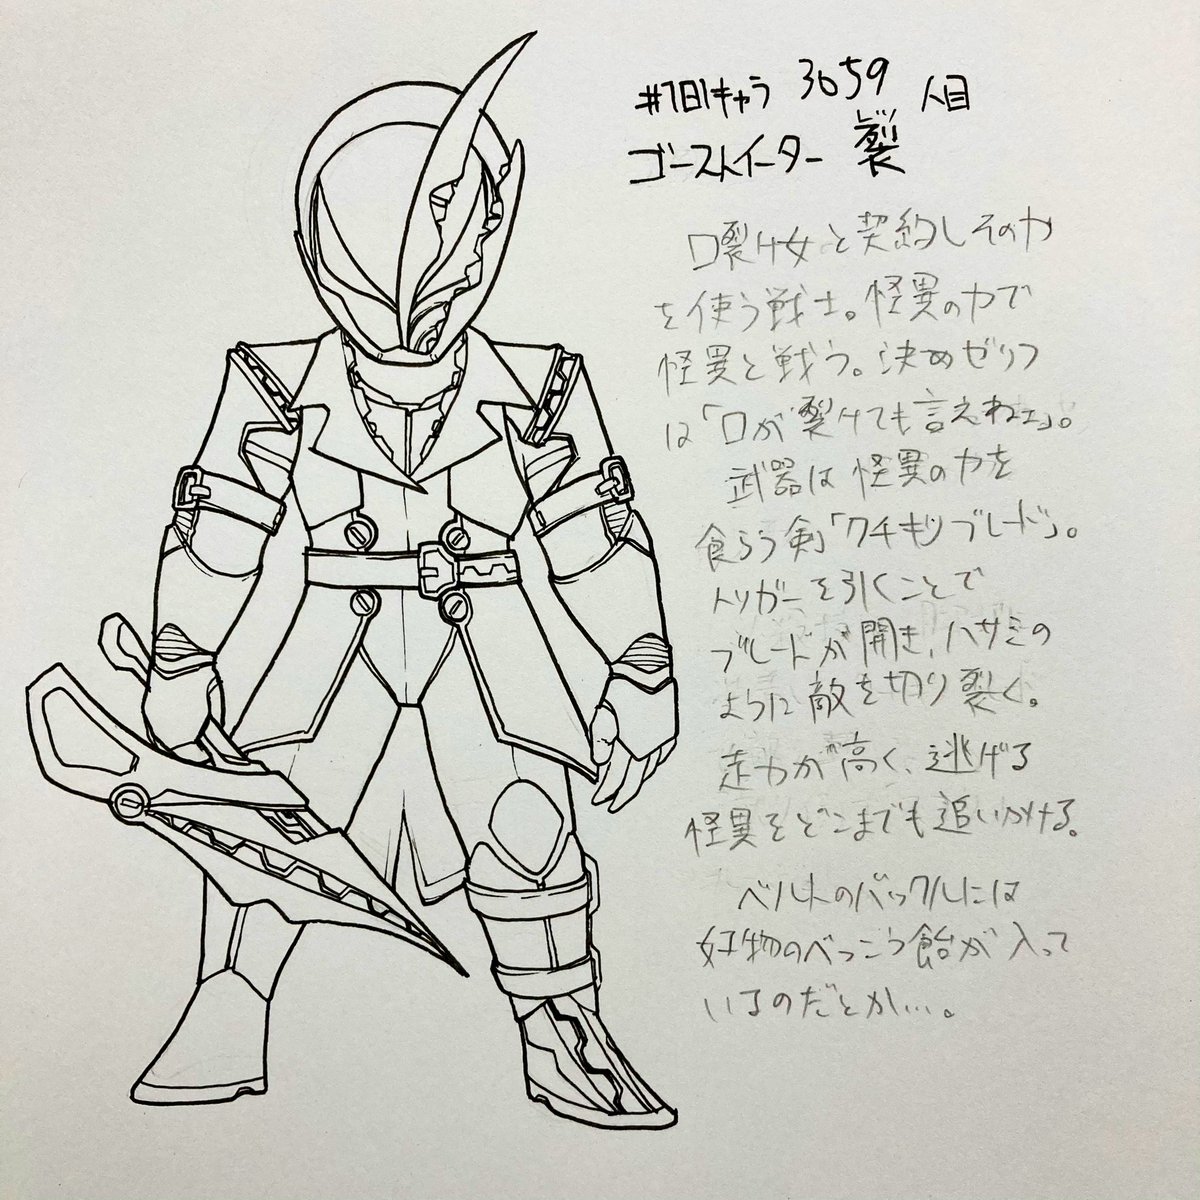 #1日1キャラ 3659人目
ゴーストイーター 裂
口裂け女と契約しその力
を使う戦士。怪異の力で
怪異と戦う。決めゼリフ
は「口が裂けても言えねェ」。
武器は怪異の力を
食らう剣「クチキリブレード」。
トリガーを引くことで
ブレードが開き、ハサミの
ように敵を切り裂く。
走力が高く、逃げる
怪異をどこまでも追いかける。
ベルトのバックルには
好物のべっこう飴が入って
いるのだとか…。